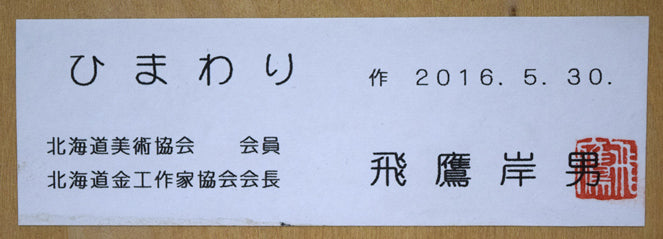 ひまわり 作 2016. 5. 30.
北海道美術協会 会員
北海道金工作家協会会長
飛鷹岸男